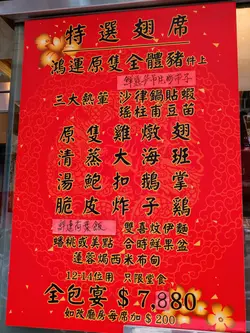 特選翅席
鴻運原隻全體豬件上
三大熱葷 沙律鍋貼蝦
瑤柱甫豆苗
原隻雞燉翅
清蒸大海班
湯鮑扣鵝掌
脆皮炸子雞
雙喜炆伊麵
蟠桃或美點 合時鮮果盆
蓮蓉焗西米布甸
12-14位用 只限堂食
全包宴 $7,880
如改廳房每席加$200